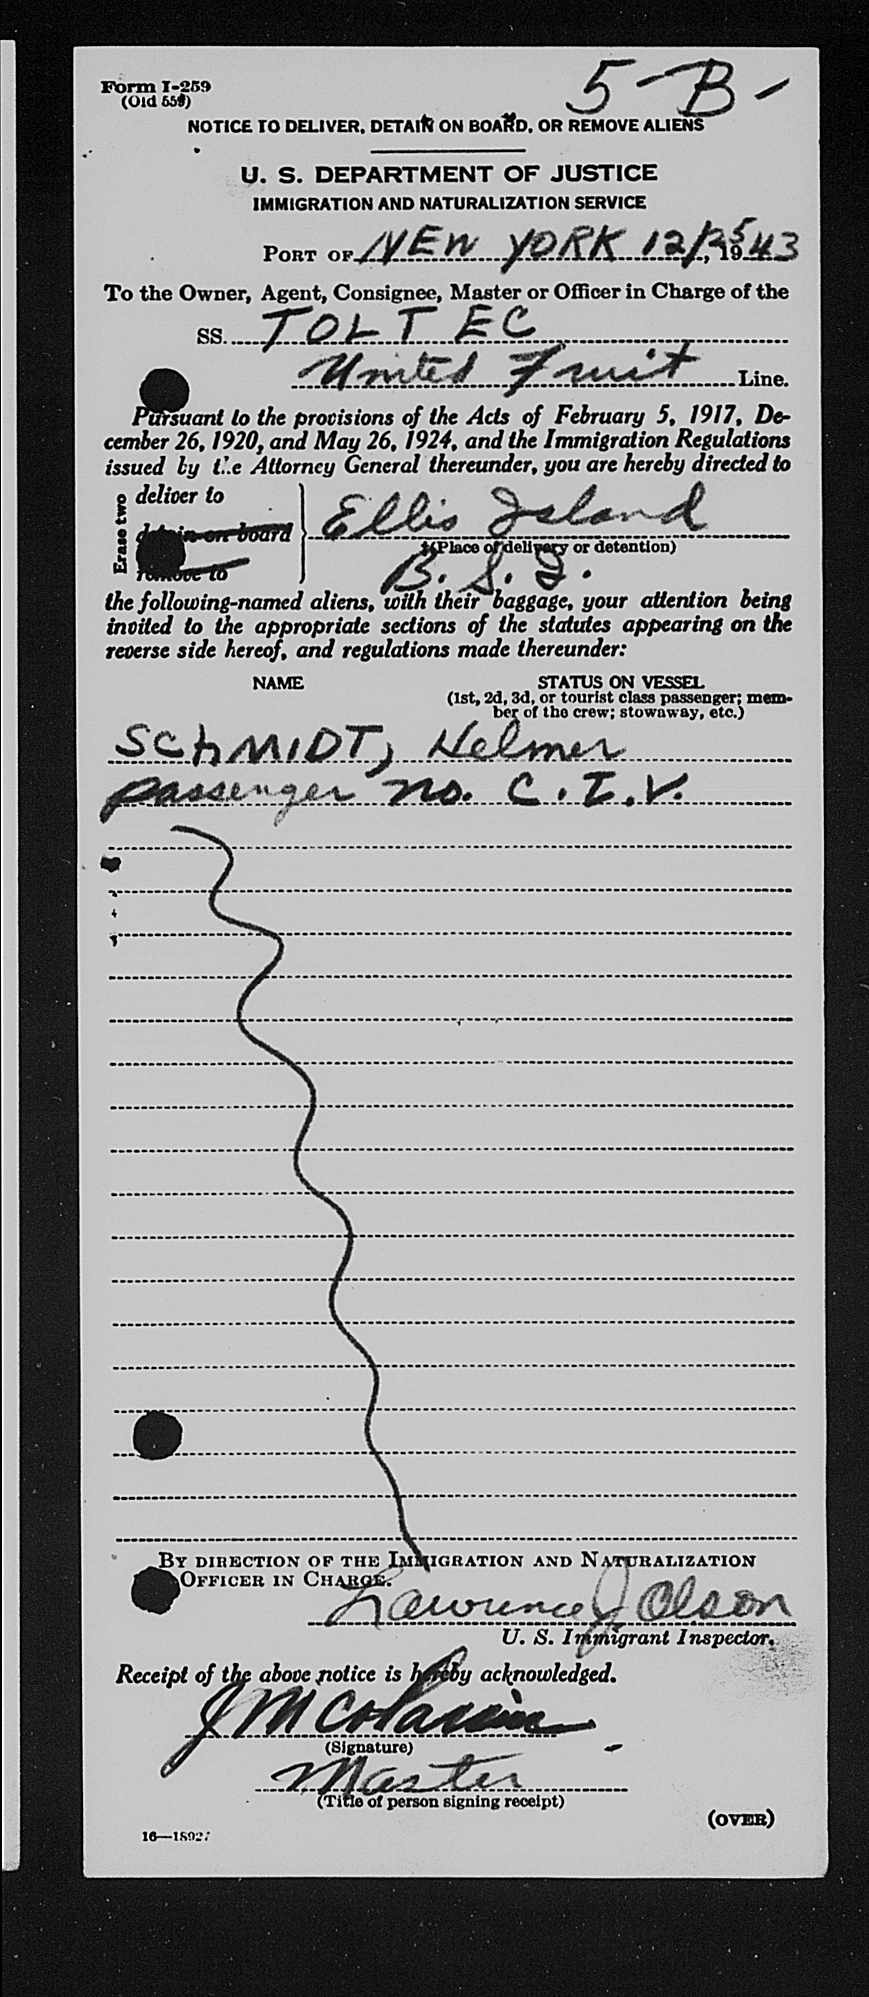 5-B-
Form I-259
(Old 559)
NOTICE TO DELIVER, DETAIN ON BOARD, OR REMOVE ALIENS
U. S. DEPARTMENT OF JUSTICE
IMMIGRATION AND NATURALIZATION SERVICE
PORT OF NEW YORK 12/25, 1943
To the Owner, Agent, Consignee, Master or Officer in Charge of the
SS. TOLTEC
United Fruit Line.
Pursuant to the provisions of the Acts of February 5, 1917, De-
cember 26, 1920, and May 26, 1924, and the Immigration Regulations
issued by the Attorney General thereunder, you are hereby directed to
Erase two
deliver to
detain on board
remove to
Ellis Island
(Place of delivery or detention)
B. S. I.
the following-named aliens, with their baggage, your attention being
invited to the appropriate sections of the statutes appearing on the
reverse side hereof, and regulations made thereunder:
NAME STATUS ON VESSEL
(1st, 2d, 3d, or tourist class passenger; mem-
ber of the crew; stowaway, etc.)
SCHMIDT, Helmer
passenger no. C.I.V.
BY DIRECTION OF THE IMMIGRATION AND NATURALIZATION
OFFICER IN CHARGE.
Lawrence J Olson
U. S. Immigrant Inspector.
Receipt of the above notice is hereby acknowledged.
(Signature)
Master
(Title of person signing receipt)
(OVER)